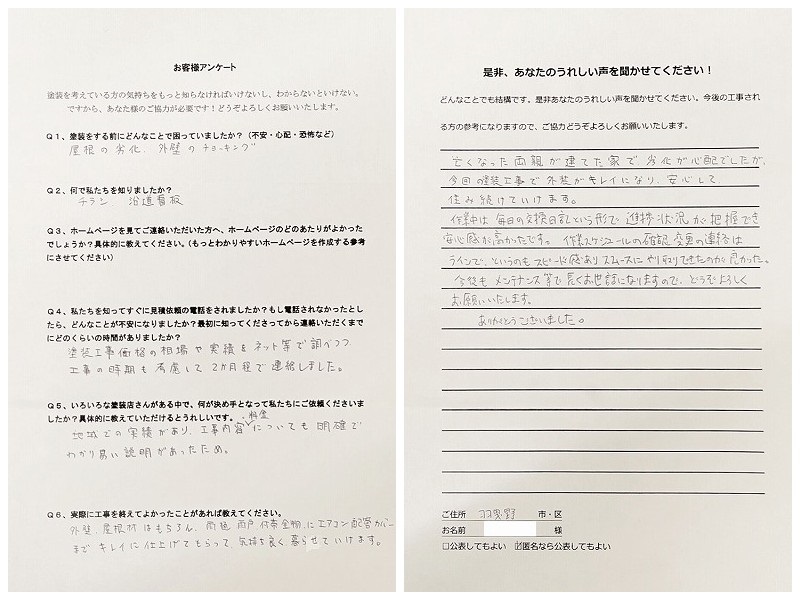 お客様アンケート
塗装を考えている方の気持ちをもっと知らなければいけないし、わからないといけない。
ですから、あなた様のご協力が必要です！どうぞよろしくお願いいたします。
Q１、塗装をする前にどんなことで困っていましたか？（不安・心配・恐怖など）
屋根の劣化、外壁のチョーキング
Q２、何で私たちを知りましたか？
チラシ、沿道看板
Q３、ホームページを見てご連絡いただいた方へ、ホームページのどのあたりがよかった
でしょうか？具体的に教えてください。（もっとわかりやすいホームページを作成する参考
にさせてください）
Q４、私たちを知ってすぐに見積依頼の電話をされましたか？もし電話されなかったとし
たら、どんなことが不安になりましたか？最初に知ってくださってから連絡いただくまで
にどのくらいの時間がありましたか？
塗装工事価格の相場や実績をネット等で調べつつ
工事の時期も考慮して2か月程で連絡しました。
Q５、いろいろな塗装店さんがある中で、何が決め手となって私たちにご依頼くださいま
したか？具体的に教えていただけるとうれしいです。
・料金
地域での実績があり、工事内容についても明確で
わかり易い説明があったため。
Q６、実際に工事を終えてよかったことがあれば教えてください。
外壁、屋根材はもちろん、雨樋、雨戸、付帯金物、にエアコン配管カバー
までキレイに仕上げてもらって、気持ち良く暮らせていけます。
是非、あなたのうれしい声を聞かせてください！
どんなことでも結構です。是非あなたのうれしい声を聞かせてください。今後の工事され
る方の参考になりますので、ご協力どうぞよろしくお願いいたします。
亡くなった両親が建てた家で劣化が心配でしたが、
今回の塗装工事で外装がキレイになり、安心して
住み続けていけます。
作業中は毎日の交換日記という形で進捗状況が把握でき
安心感が高かったです。作業スケジュールの確認、変更の連絡は
ラインで、というのもスピード感ありスムーズにやり取りできたのが良かった。
今後もメンテナンス等で長くお世話になりますので、どうぞよろしく
お願いいたします。
ありがとうございました。
ご住所 羽曳野 市・区
お名前 様
□公表してもよい ☑匿名なら公表してもよい